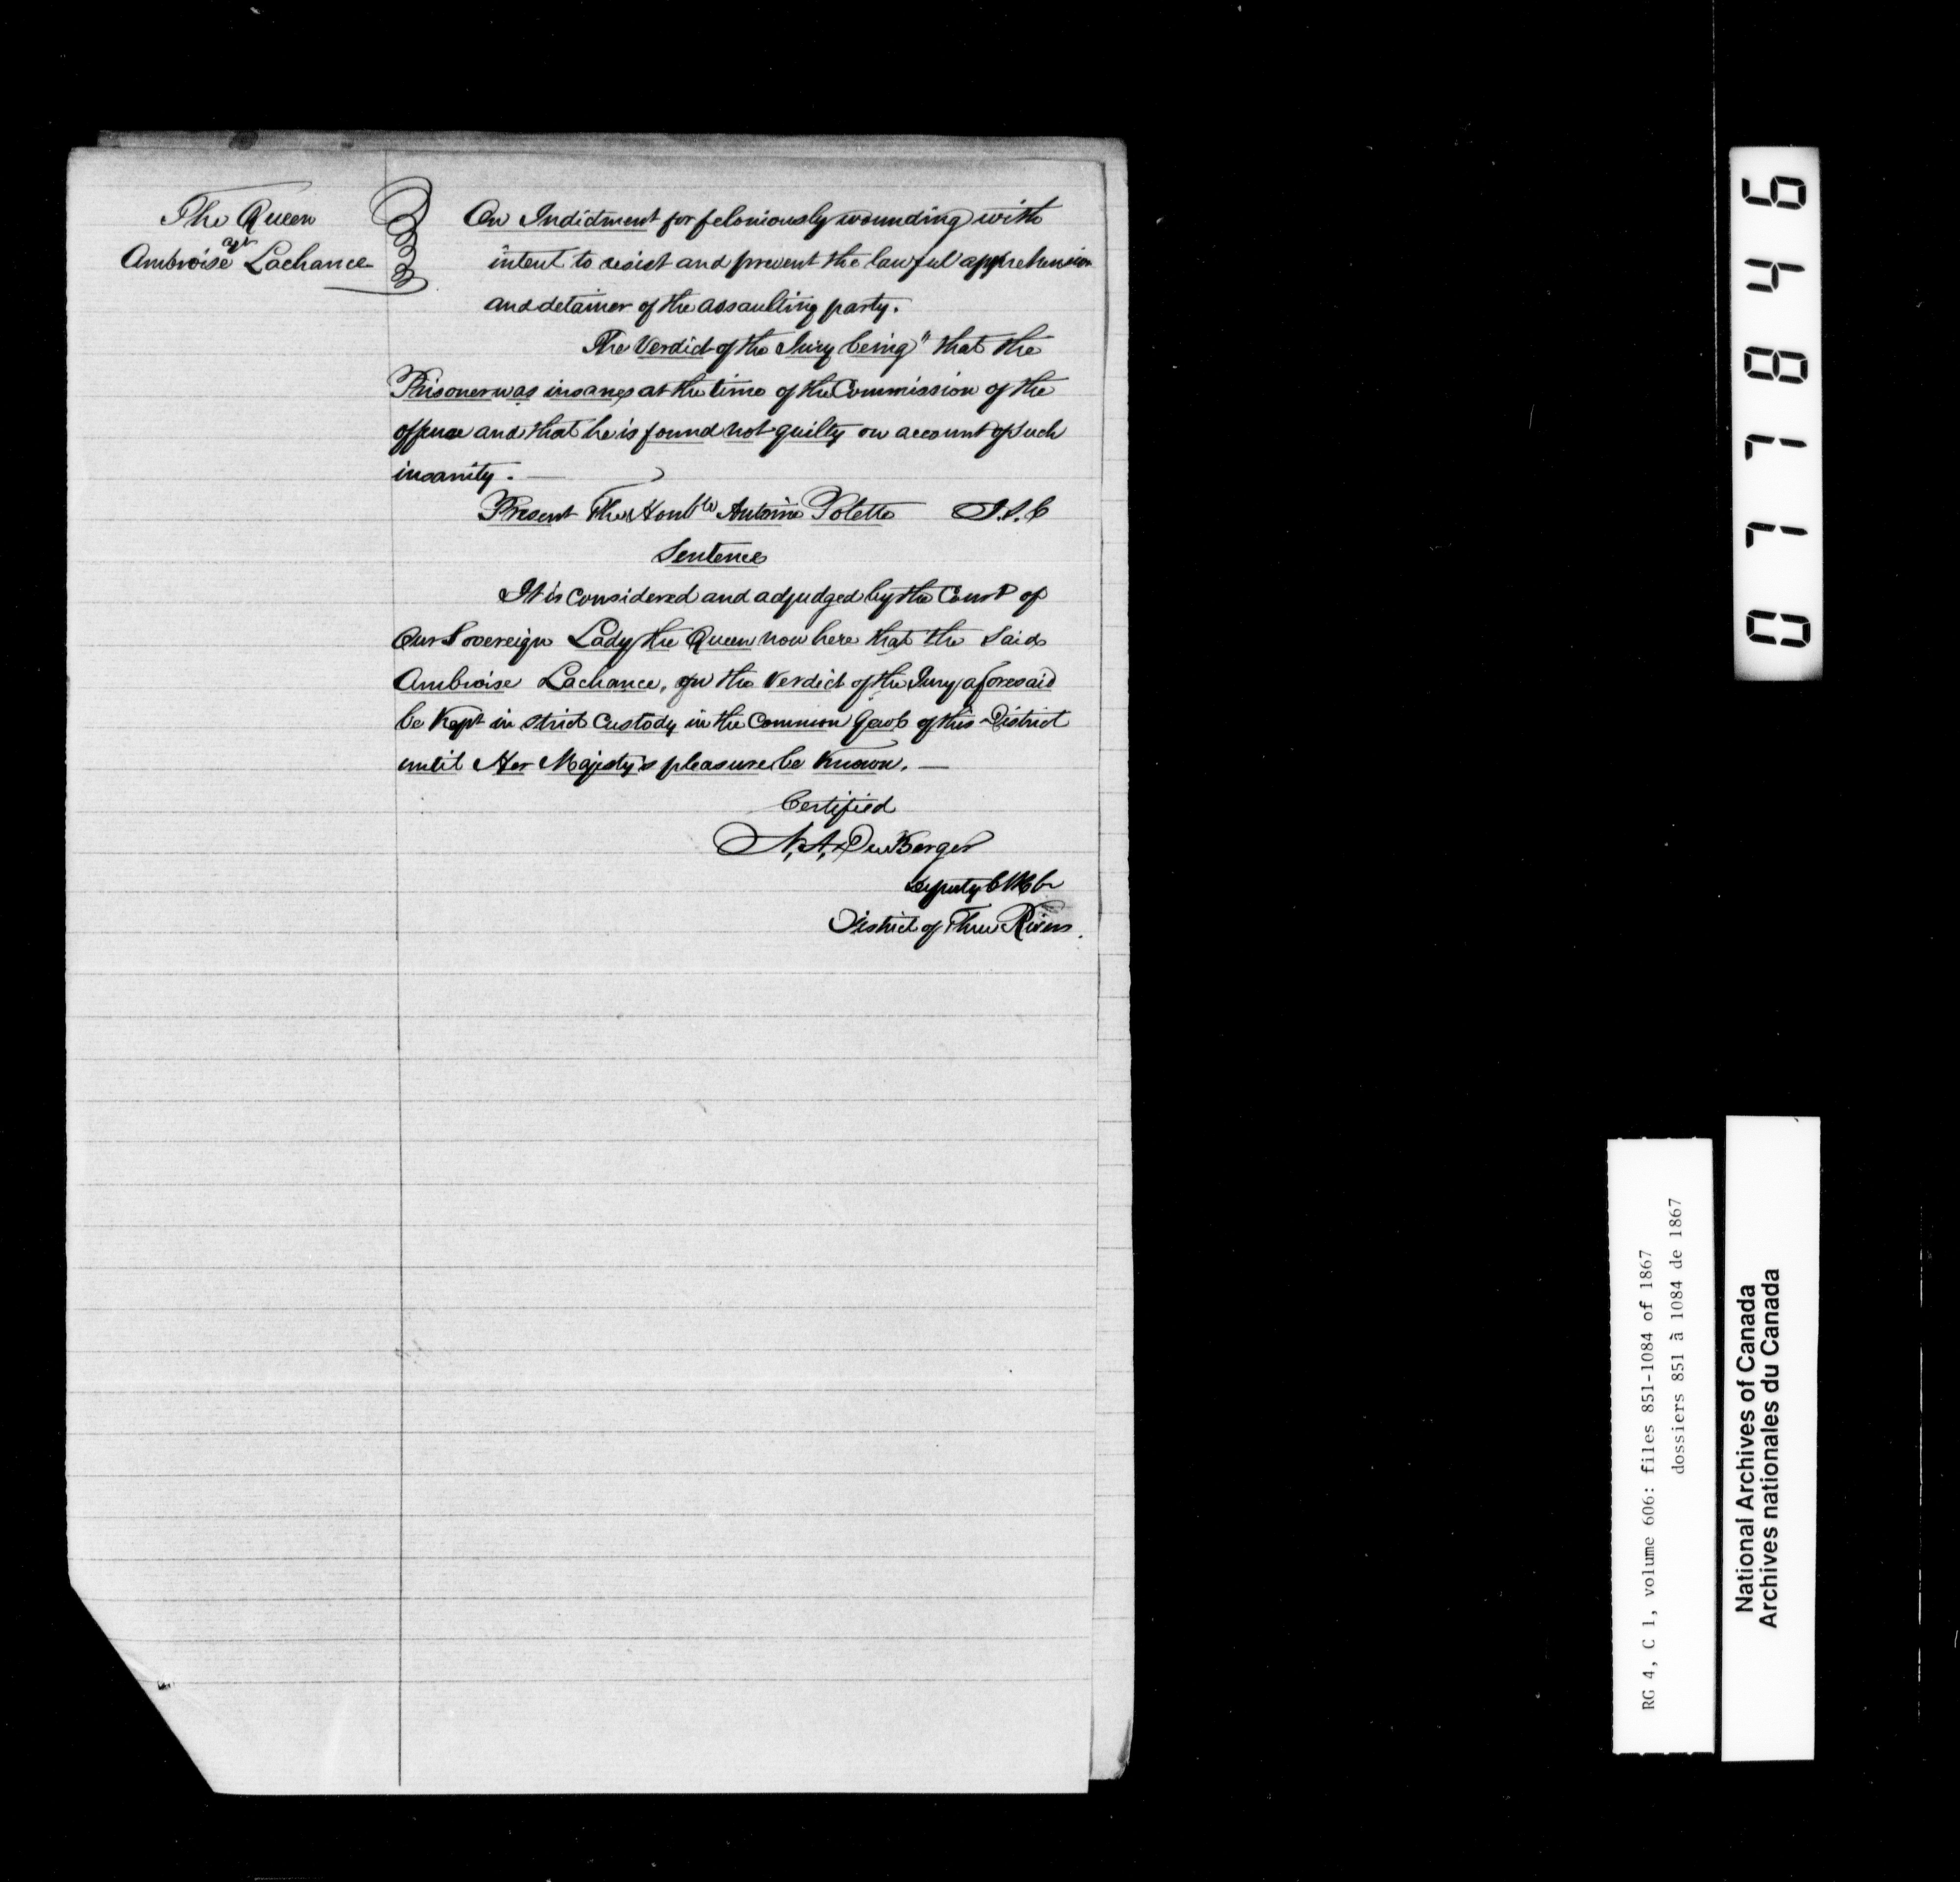 The Queen
agt
Ambroise Lachance
On Indictment for feloniously wounding with
intent to resist and prevent the lawful apprehension
and detainer of the assaulting party.
The Verdict of the Jury being "that the
Prisoner was insane at the time of the Commission of the
offence and that he is found not guilty on account of such
insanity. —
Present The Honble Antoine Polette J.S.C
Sentence
It is considered and adjudged by the Court of
Our Sovereign Lady the Queen now here that the Said
Ambroise Lachance, on the Verdict of the Jury aforesaid
be Kept in strict Custody in the Common Gaol of this District
until Her Majesty's pleasure be Known. —
Certified
N. A. DuBerger
Deputy
District of Three Rivers.
077846
RG 4, C 1, volume 606: files 851-1084 of 1867
dossiers 851 à 1084 de 1867
National Archives of Canada
Archives nationales du Canada